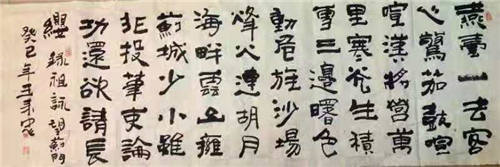 燕臺一去客
心驚笳鼓喧
喧漢將營萬
里寒光生積
雪三邊曙色
動危旌沙場
烽火連胡月
海畔雲山擁
薊城少小雖
非投筆吏論
功還欲請長
纓 錄祖詠望薊門
癸巳年